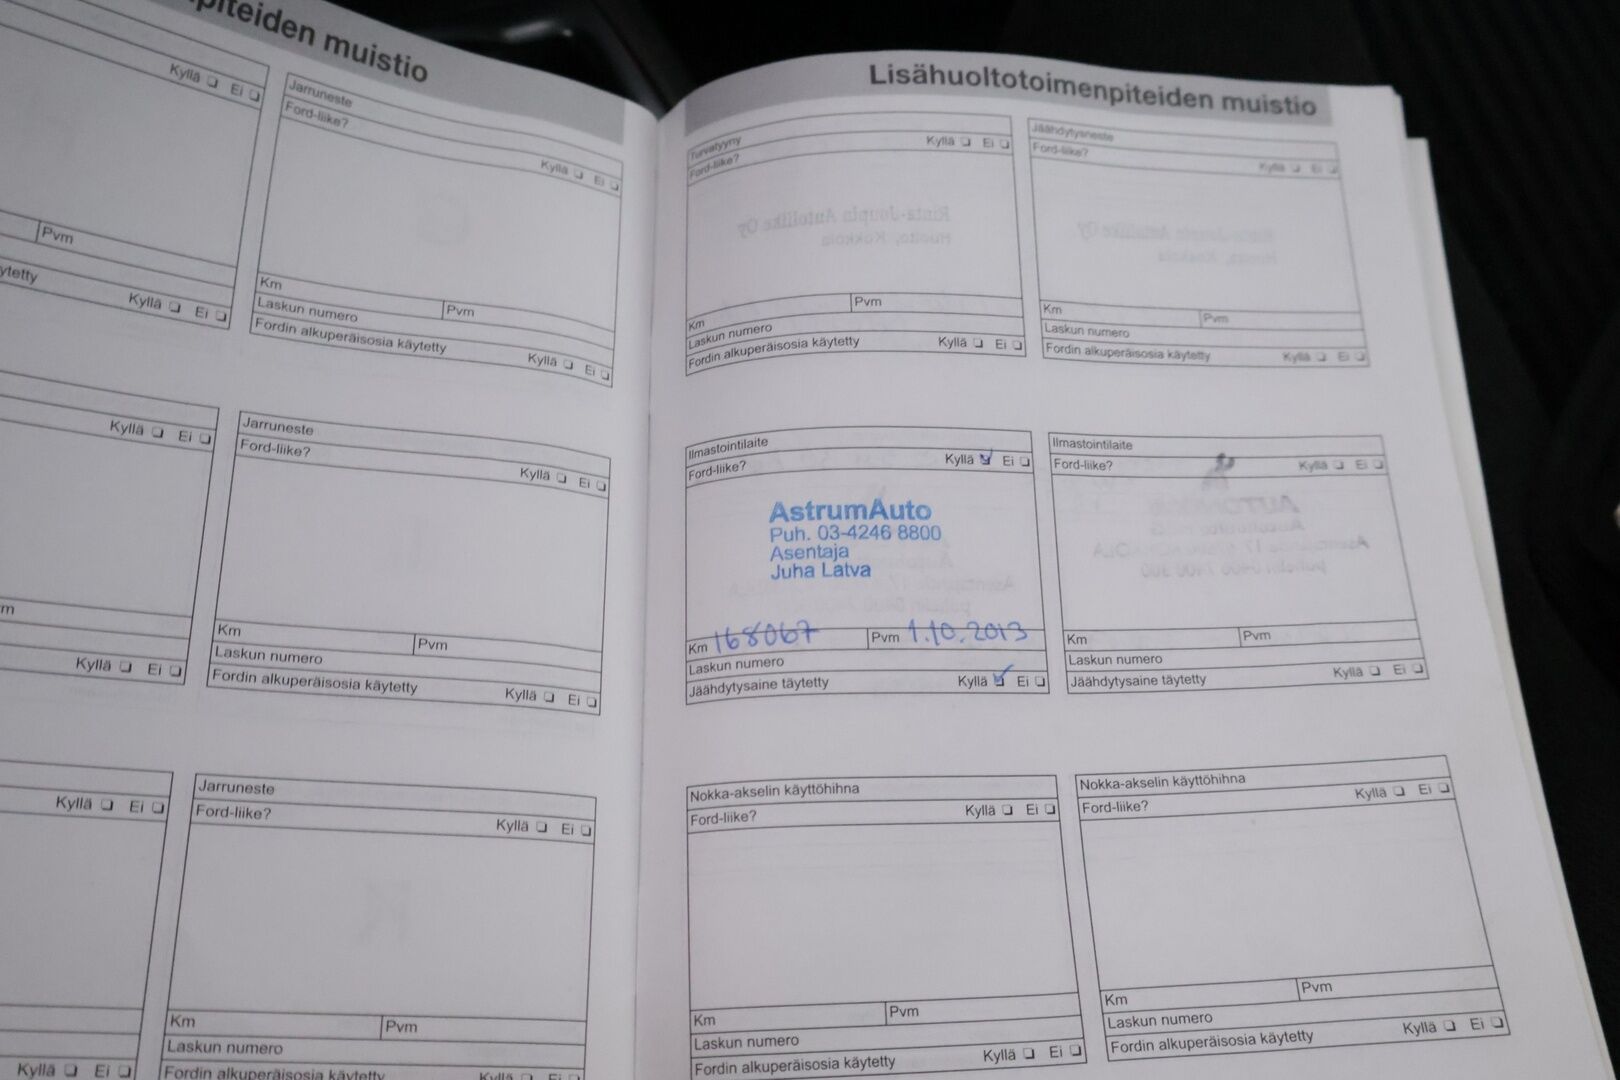 piteiden muistio
Kyllä ❏ Ei ❏
Pvm
ytetty
Kyllä ❏ Ei ❏
Kyllä ❏ Ei ❏
m
Kyllä ❏ Ei ❏
Kyllä ❏ Ei ❏
Kyllä ❏ Ei ❏
Jarruneste
Ford-liike?
Kyllä ❏ Ei ❏
Km
Pvm
Laskun numero
Fordin alkuperäisosia käytetty
Kyllä ❏ Ei ❏
Jarruneste
Ford-liike?
Kyllä ❏ Ei ❏
Km
Pvm
Laskun numero
Fordin alkuperäisosia käytetty
Kyllä ❏ Ei ❏
Jarruneste
Ford-liike?
Kyllä ❏ Ei ❏
Km
Pvm
Laskun numero
Fordin alkuperäisosia käytetty
Kyllä ❏ Ei ❏
Lisähuoltotoimenpiteiden muistio
Turvatyyny
Ford-liike?
Kyllä ❏ Ei ❏
Km
Pvm
Laskun numero
Fordin alkuperäisosia käytetty
Kyllä ❏ Ei ❏
Jäähdytysneste
Ford-liike?
Kyllä ❏ Ei ❏
Km
Pvm
Laskun numero
Fordin alkuperäisosia käytetty
Kyllä ❏ Ei ❏
Ilmastointilaite
Ford-liike?
Kyllä ☑ Ei ❏
AstrumAuto
Puh. 03-4246 8800
Asentaja
Juha Latva
Km 168067
Pvm 1.10.2013
Laskun numero
Jäähdytysaine täytetty
Kyllä ☑ Ei ❏
Ilmastointilaite
Ford-liike?
Kyllä ❏ Ei ❏
Km
Pvm
Laskun numero
Jäähdytysaine täytetty
Kyllä ❏ Ei ❏
Nokka-akselin käyttöhihna
Ford-liike?
Kyllä ❏ Ei ❏
Km
Pvm
Laskun numero
Fordin alkuperäisosia käytetty
Kyllä ❏ Ei ❏
Nokka-akselin käyttöhihna
Ford-liike?
Kyllä ❏ Ei ❏
Km
Pvm
Laskun numero
Fordin alkuperäisosia käytetty
Kyllä ❏ Ei ❏